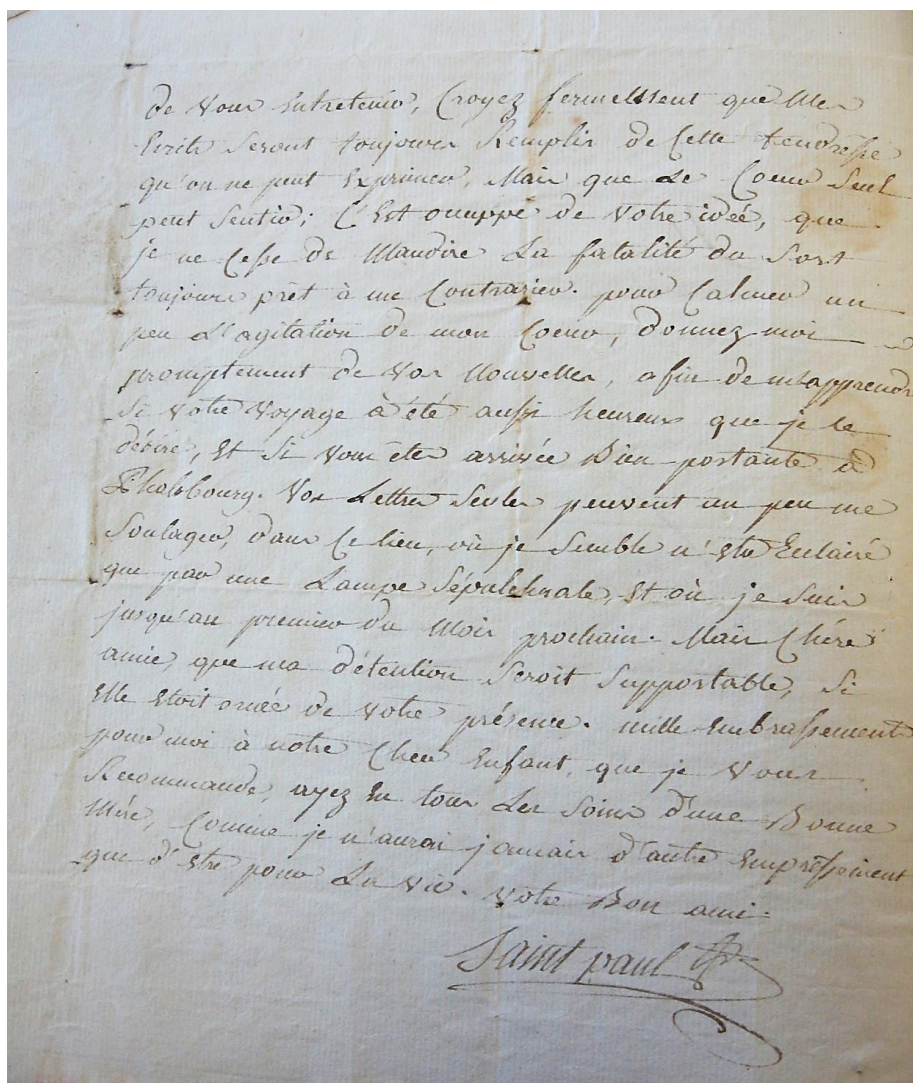 de Vous entretenir, Croyez fermement que Mes
Ecrits Seront toujours Remplis de Cette tendresse
qu'on ne peut Exprimer, Mais que Le Coeur Seul
peut Sentir; C'Est occuppé de Votre idée, que
je ne Cesse de Maudire La fatalité du Sort
toujours prêt à me Contrarier. pour Calmer un
peu L'agitation de mon Coeur, donnez moi
promptement de Vos Nouvelles, afin de m'apprendre
Si Votre Voyage à été aussi heureux que je le
désire, Et Si Vous étes arrivée Bien portante à
Phalsbourg. Vos Lettres Seules peuvent un peu me
Soulager, dans Ce lieu, où je Semble n'Etre Eclairé
que par une Lampe Sépulchrale, Et où je Suis
jusqu'au premier du Mois prochain. Mais Chére
amie, que ma détention Seroit Supportable, Si
Elle Etoit ornée de Votre présence. mille Embrassements
pour moi à notre Cher Enfant, que je Vous
Recommande, ayez En tous Les Soins d'une Bonne
Mére, Comme je n'aurai jamais d'autre Empressement
que d'Etre pour La Vie. Votre Bon ami.
Saint paul